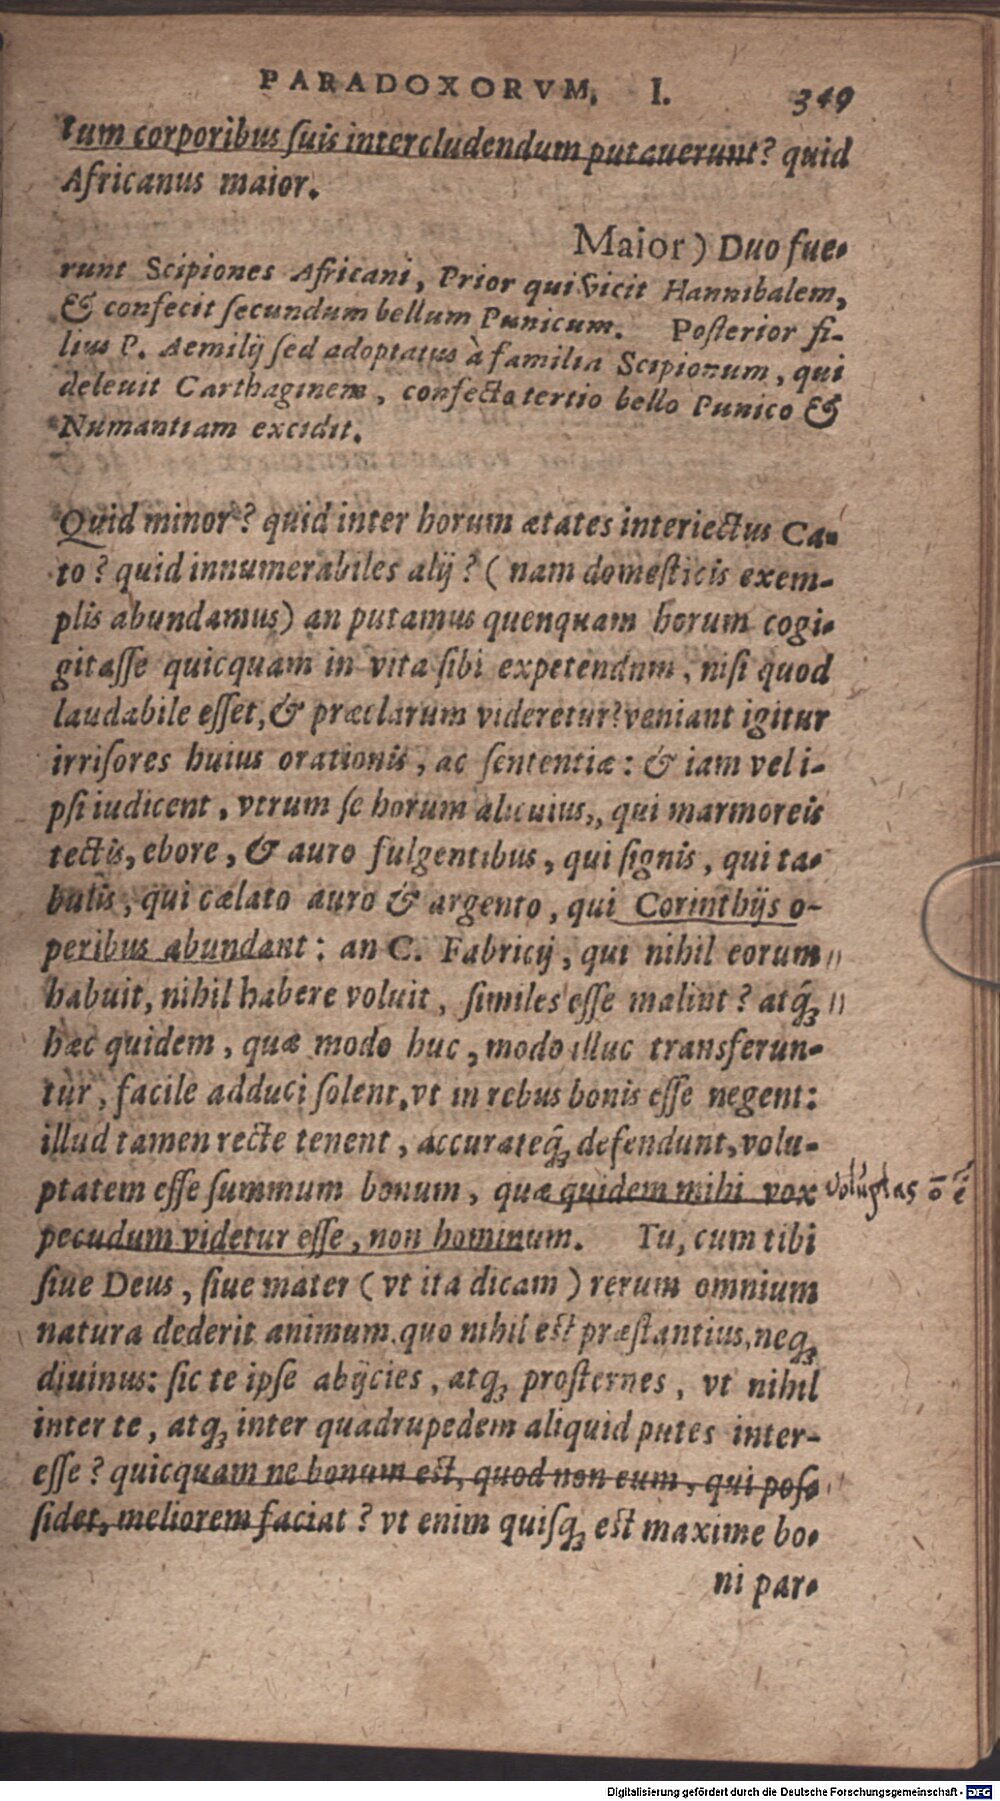 PARADOXORVM, I. 349
tum corporibus ſuis intercludendum putauerunt? quid
Africanus maior.
Maior) Duo fue-
runt Scipiones Africani, Prior qui vicit Hannibalem,
& confecit ſecundum bellum Punicum. Poſterior fi-
lius P. Aemilij ſed adoptatus à familia Scipionum, qui
deleuit Carthaginem, confecto tertio bello Punico &
Numantiam excidit.
Quid minor? quid inter horum ætates interiectus Ca-
to? quid innumerabiles alij? (nam domeſticis exem-
plis abundamus) an putamus quenquam horum cogi-
gitaſſe quicquam in vita ſibi expetendum, niſi quod
laudabile eſſet, & præclarum videretur? veniant igitur
irriſores huius orationis, ac ſententiæ: & iam vel i-
pſi iudicent, vtrum ſe horum alicuius, qui marmoreis
tectis, ebore, & auro fulgentibus, qui ſignis, qui ta-
bulis, qui cælato auro & argento, qui Corinthijs o-
peribus abundant: an C. Fabricij, qui nihil eorum
habuit, nihil habere voluit, ſimiles eſſe malint? atq́ꝫ
hæc quidem, quæ modo huc, modo illuc transferun-
tur, facile adduci ſolent, vt in rebus bonis eſſe negent:
illud tamen recte tenent, accurateq́ꝫ defendunt, volu-
ptatem eſſe ſummum bonum, quæ quidem mihi vox
pecudum videtur eſſe, non hominum. Tu, cum tibi
ſiue Deus, ſiue mater (vt ita dicam) rerum omnium
natura dederit animum, quo nihil eſt præſtantius, neqꝫ
diuinus: ſic te ipſe abijcies, atqꝫ proſternes, vt nihil
inter te, atqꝫ inter quadrupedem aliquid putes inter-
eſſe? quicquam ne bonum eſt, quod non eum, qui poſ-
ſidet, meliorem faciat? vt enim quiſqꝫ eſt maxime bo-
ni par-
Digitalisierung gefördert durch die Deutsche Forschungsgemeinschaft - DFG